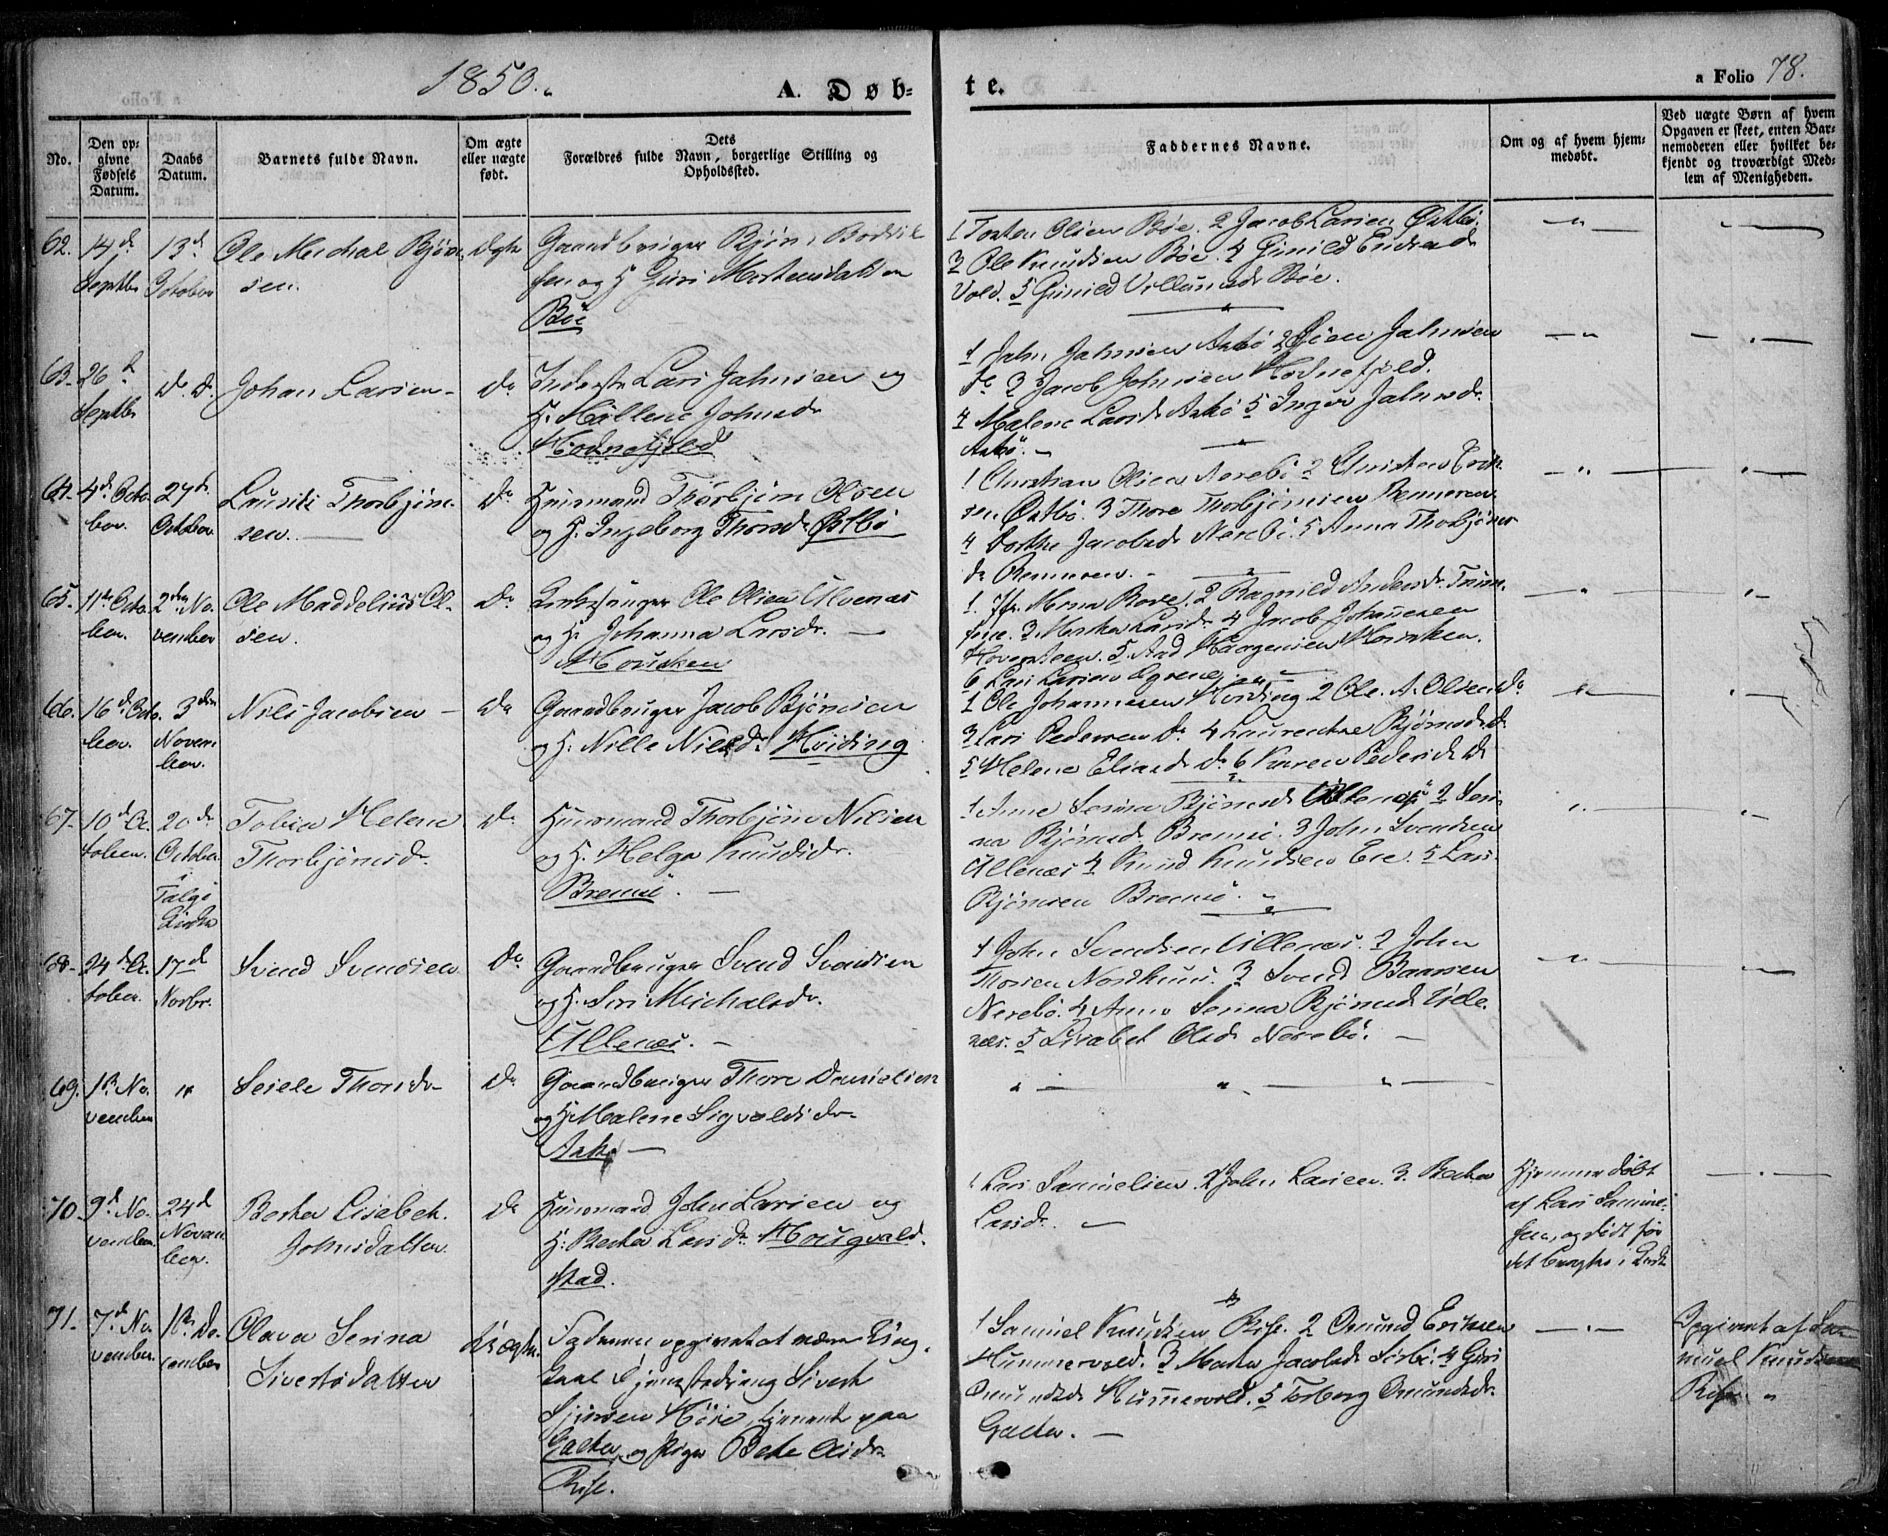 1850.
A. Døb-
te.
a Folio 78.
No.
Den op-
givne
Fødsels
Datum.
Daabs
Datum.
Barnets fulde Navn.
Om ægte
eller uægte
født.
Dets
Forældres fulde Navn, borgerlige Stilling og
Opholdssted.
Faddernes Navne.
Om og af hvem hjem-
medøbt.
Ved uægte Børn af hvem
Opgaven er skeet, enten Bar-
nemoderen eller hvilket be-
kjendt og troværdigt Med-
lem af Menigheden.
62. 14d
Septbr
13d
October
Ole Michal Bjørn
sen.
Ægte
Gaardbruger Bjørn
sen og H. Guri Mortensdatter
Bøe
1 Tosten Olsen Bøe. 2 Jacob Larsen Østbø
3 Ole Knudsen Bøe. 4 Gunild
Vold. 5 Gunild Bøe.
63. 26d
Septbr
D. D.
Johan Larsen
Do
Inderste Lars Jahnsen og
H. Mallene Johnsdr
Hodnefjeld
1 Jahn Jahnsen Askø 2 Jahnsen
Do 3 Jacob Johnsen Hodnefjeld.
4 Malene Larsdr Askø 5 Inger Jahnsdr
Askø.
64. 4d Octo-
ber.
27d
October
Laurits Thorbjørn-
sen.
Do
Huusmand Thorbjørn Olsen
og H. Ingeborg Thorsdr Østbø
1 Christian Olsen Nerebø 2 Christen Erik-
sen Østbø. 3 Thore Thorbjørnsen Rennøren
4 Dorthe Jacobsdr Nerebø. 5 Anna Thorbjørns-
dr Rennøren.
65. 11te Octo-
ber.
2den No-
vember
Ole Maddelius Ol-
sen.
Do
Kirkesanger Ole Olsen Ulvenæs
og H. Johanna Larsdr.
Houskeen
2 Ragnild Andersdr
3 Marthe Larsdr 4 Jacob Johannesen
5. Aad Haagensen
6 Lars Larsen
66. 16d Octo-
ber.
3die
Novem-
ber.
Nils Jacobsen
Do
Gaardbruger Jacob Bjørnsen
og H. Nille Nilsdr Hviding
1 Ole Johannesen Hviding 2 Ole A. Olsen Do
3 Lars Pedersen Do 4 Laurentse Bjørnsdr Do
5 Helene Eliasdr Do 6 Karen Pedersdr Do
67. 10d Oc-
tober.
20d
October
i
Talgø
Kirke
Tobia Helene
Thorbjørnsdr.
Do
Huusmand Thorbjørn Nilsen
og H. Helga Knudsdr.
Bremø.
1 Anne Serina Bjørnsdr Ullenæs 2 Seri-
na Bjørnsdr Bremø. 3 John Svendsen
Ullenæs 4 Knud Knudsen Eee. 5 Lars
Bjørnsen Bremø.
68. 24d Oc-
tober.
17d
Novbr.
Svend Svendsen
Do
Gaardbruger Svend Svendsen
og H. Siri Michalsdr.
Ullenæs.
1 John Svendsen Ullenæs. 2 John
Thorsen Nordhuus. 3 Svend Baarsen
Nerebø. 4 Anne Serina Bjørnsdr Ulle-
næs. 5 Lisabet Olsdr Nerebø.
69. 1te No-
vember
Seiele Thorsdr
Do
Gaardbruger Thore Danielsen
og H. Malene Sigvaldsdr
Askø
70. 9d No-
vember.
24d
Novem-
ber.
Berta Lisabet
Johnsdatter.
Do
Huusmand John Larsen og
H. Berta Larsdr Hougvald-
stad.
1 Lars Samuelsen. 2 John Larsen. 3. Berta
Larsdr.
Hjemmedøbt
af Lars Samuel-
sen, og død før
det bragtes i Kirke
71. 7d No-
vember.
1te De-
cember
Olava Serina
Sivertsdatter
Uægte.
Faderen opgivet at være Ung-
karl Sivert
tjenende paa
Galten, og Pige
Rise.
1 Samuel Knudsen Rise. 2 Omund Eriksen
Hummervold. 3 Marta Jacobsdr Sørbø. 4 Guri
Omundsdr Hummervold. 5 Torborg Omundsdr
Galten.
Opgivet af Sa-
muel Knudsen
Rise